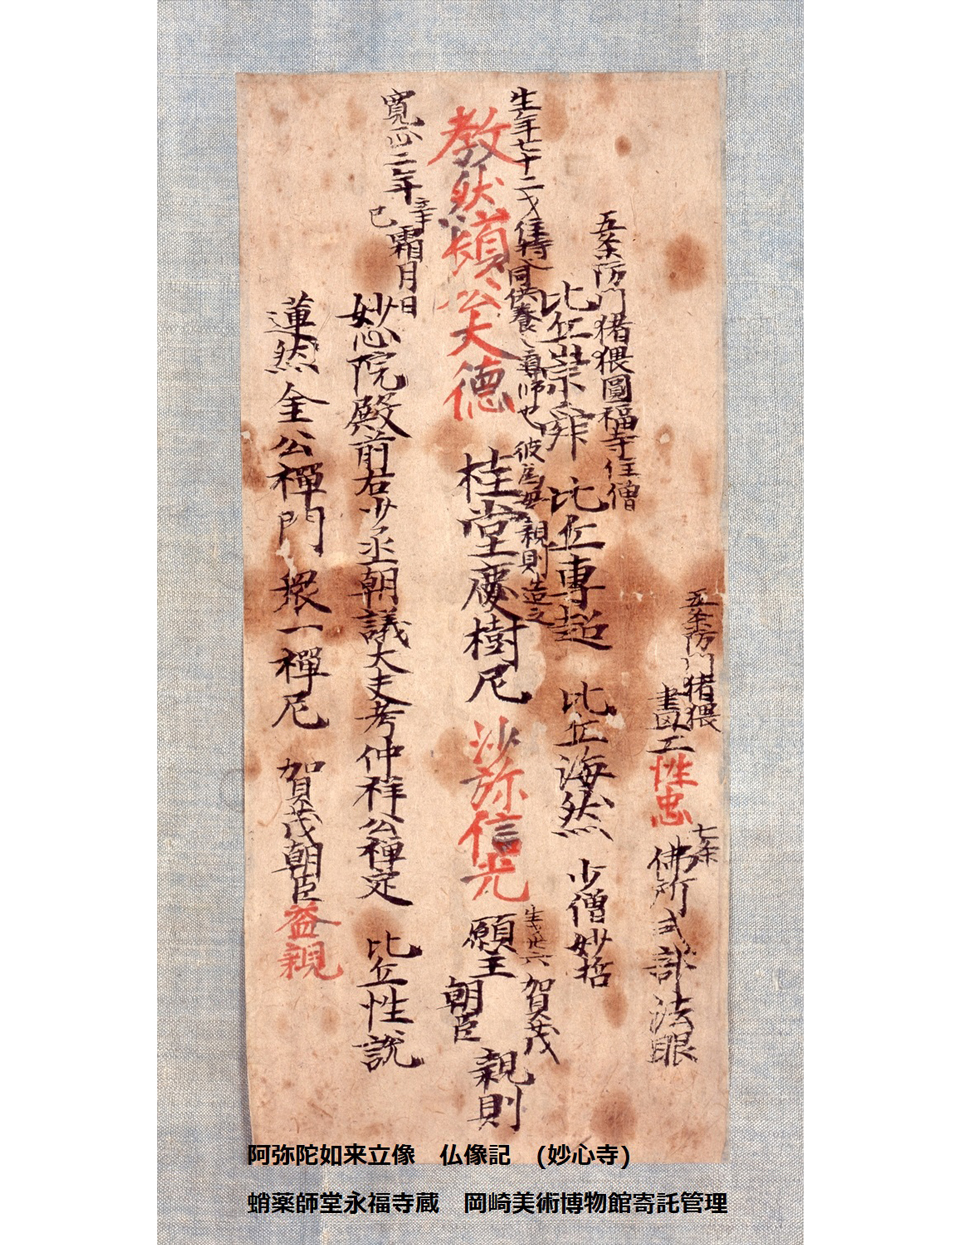 五条防門猪猥
畫工性忠
七条
佛所式部法眼
五条防門猪猥圓福寺住僧
比丘崇舜 比丘専超 比丘海然 少僧妙哲
生年七十二才住持同供養之導師也 彼為母親則造之
教然頓公大德 桂堂慶樹尼 沙弥信光
生年廿六
願主 賀茂朝臣親則
寛正二年辛巳霜月日
妙心院殿前右少丞朝議大夫考仲祥公禅定 比丘性説
蓮然全公禪門 環一禪尼 賀茂朝臣益親
阿弥陀如来立像 仏像記 (妙心寺)
蛸薬師堂永福寺蔵 岡崎美術博物館寄託管理